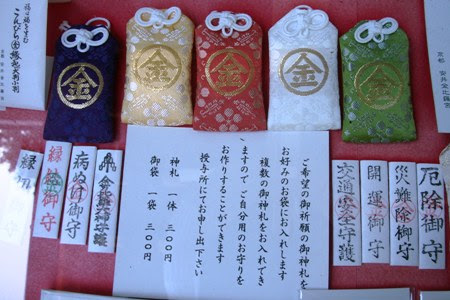 京都 安井金比羅宮
金
金
金
金
金
厄除御守
災難除御守
開運御守
交通安全守護
ご希望の御祈願の御神札を
お好みのお袋にお入れします
複数の御神札をお入れでき
ますので ご自分用のお守りを
お作りすることができます
授与所にてお申出下さい
神札 一体 三〇〇円
御袋 一袋 三〇〇円
病ぬけ御守
縁結御守
縁切